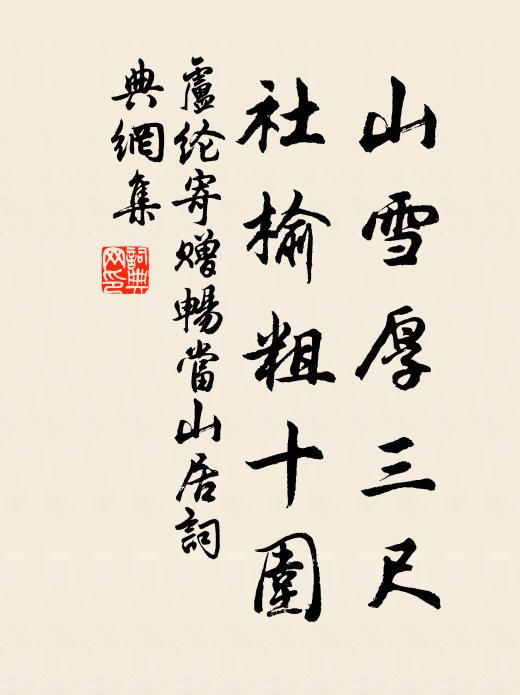 山雪厚三尺
社榆粗十圍
盧纶寄贈暢當山居詞
典網集
詞典
网印